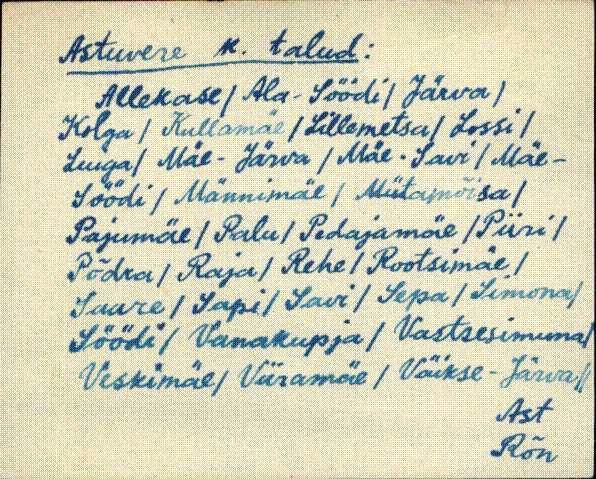 Astuvere k. talud:
Allekase/ Ala-Söödi/ Järva/
Kolga/ Kullamäe/ Lillemetsa/ Lossi/
Luuga/ Mäe-Järva/ Mäe-Savi/ Mäe-
Söödi/ Männimäe/ Mütamõisa/
Pajumäe/ Palu/ Pedajamäe/ Piiri/
Põdra/ Raja/ Rehe/ Rootsimäe/
Saare/ Sapi/ Savi/ Sepa/ Simona/
Söödi/ Vanakupja/ Vastsesimuna/
Veskimäe/ Viiramäe/ Väikse-Järva//
Ast
Rõn